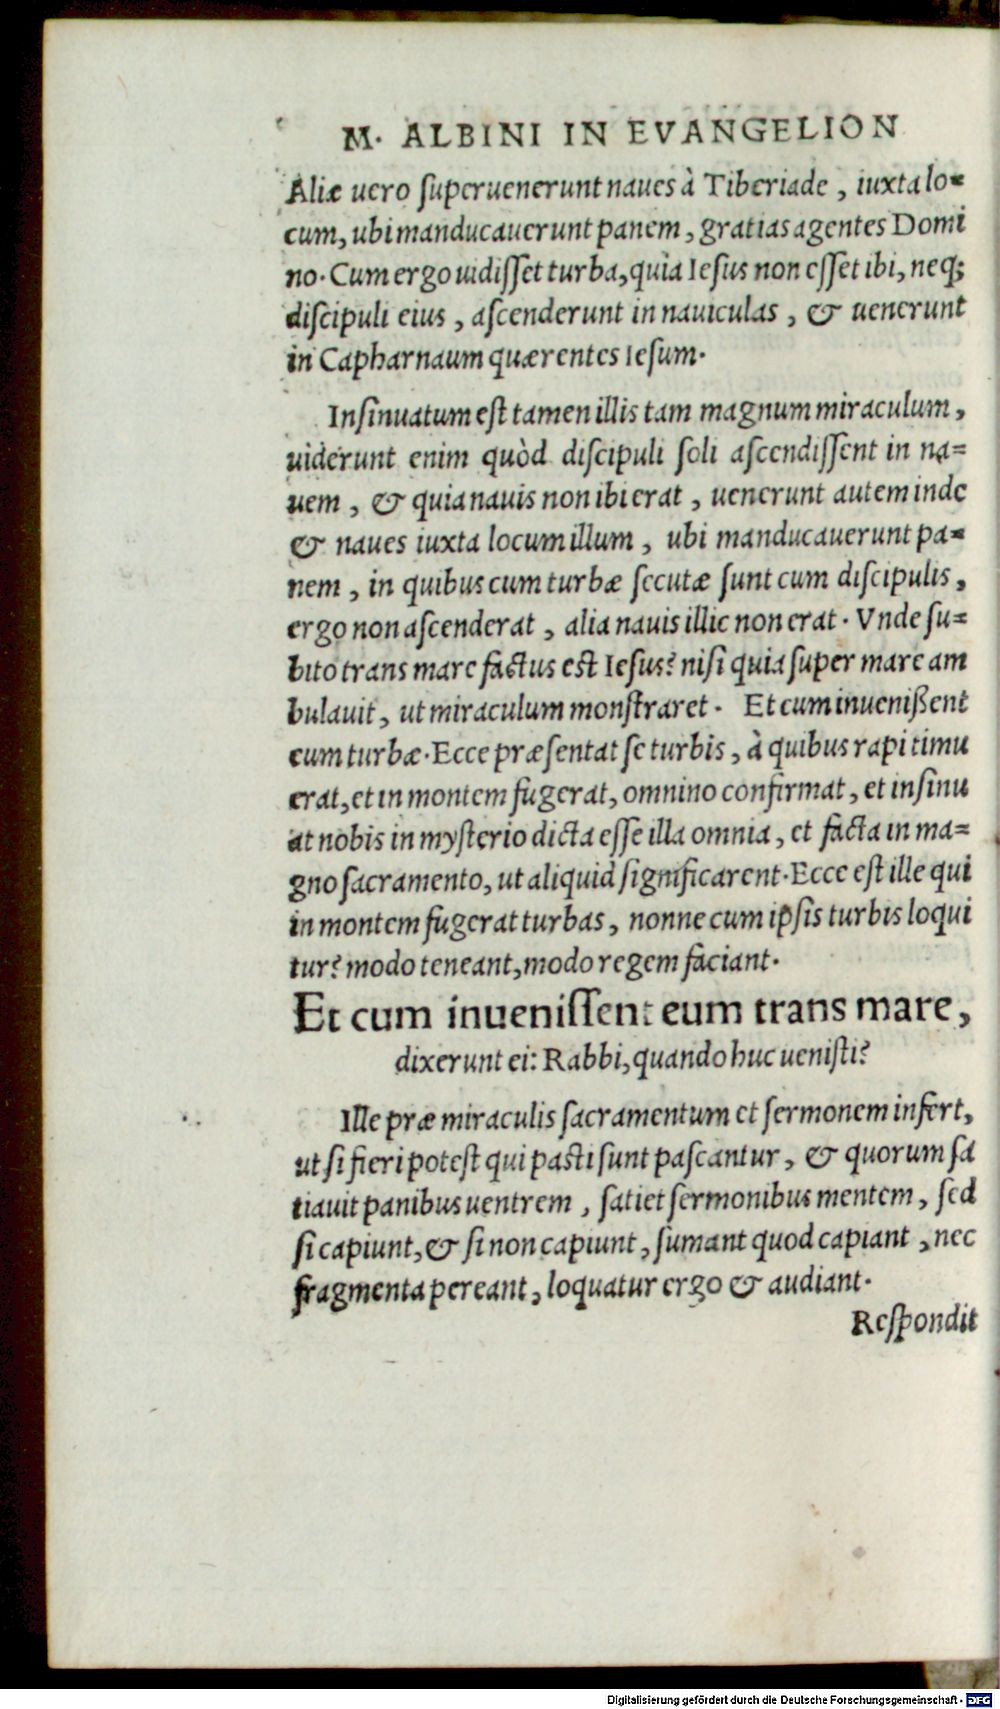 M. ALBINI IN EVANGELION
Aliæ uero ſuperuenerunt naues à Tiberiade, iuxta lo-
cum, ubi manducauerunt panem, gratias agentes Domi
no. Cum ergo uidiſſet turba, quia Ieſus non eſſet ibi, neq;
diſcipuli eius, aſcenderunt in nauiculas, & uenerunt
in Capharnaum quærentes Ieſum.
Inſinuatum eſt tamen illis tam magnum miraculum,
uiderunt enim quòd diſcipuli ſoli aſcendiſſent in na=
uem, & quia nauis non ibi erat, uenerunt autem inde
& naues iuxta locum illum, ubi manducauerunt pa-
nem, in quibus cum turbæ ſecutæ ſunt cum diſcipulis,
ergo non aſcenderat, alia nauis illic non erat. Vnde ſu=
bito trans mare factus est Ieſus? niſi quia ſuper mare am
bulauit, ut miraculum monſtraret. Et cum inueniſſent
eum turbæ. Ecce præſentat ſe turbis, à quibus rapi timu
erat, et in montem fugerat, omnino confirmat, et inſinu
at nobis in myſterio dicta eſſe illa omnia, et facta in ma=
gno ſacramento, ut aliquid ſignificarent. Ecce eſt ille qui
in montem fugerat turbas, nonne cum ipſis turbis loqui
tur? modo teneant, modo regem faciant.
Et cum inueniſſent eum trans mare,
dixerunt ei: Rabbi, quando huc ueniſti?
Ille præ miraculis ſacramentum et ſermonem infert,
ut ſi fieri poteſt qui paſti ſunt paſcantur, & quorum ſa
tiauit panibus uentrem, ſatiet ſermonibus mentem, ſed
ſi capiunt, & ſi non capiunt, ſumant quod capiant, nec
fragmenta pereant, loquatur ergo & audiant.
Reſpondit
Digitalisierung gefördert durch die Deutsche Forschungsgemeinschaft - DFG